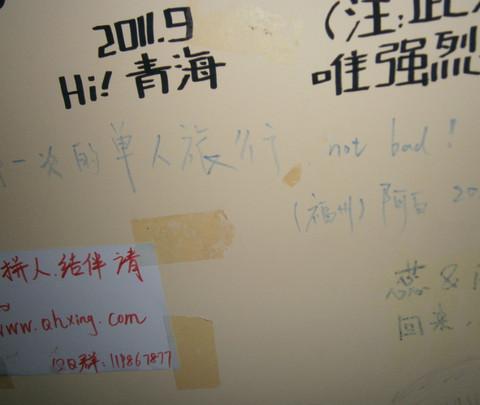 2011.9
Hi! 青海
(注:此
唯强烈
一次的单人旅行, not bad!
(福州) 阿百 20
拼人.结伴请
www.qhxing.com
QQ群:119867877
蕊&
回来.